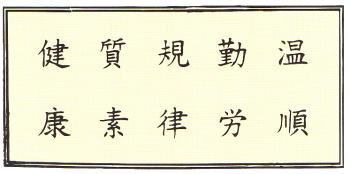 温順
勤労
規律
質素
健康